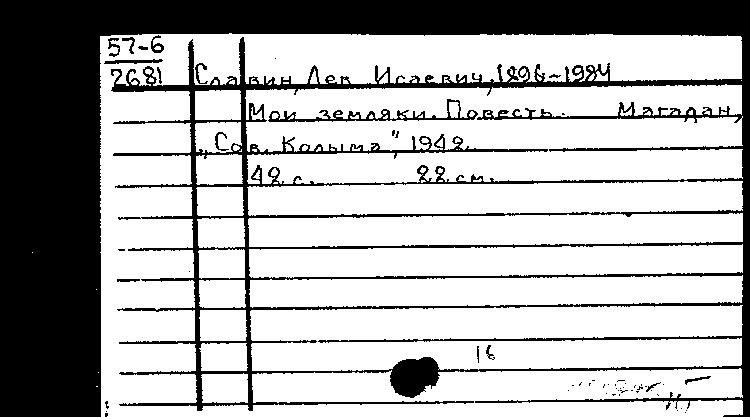 57-6
2681
Славин, Лев Исаевич, 1896-1984
Мои земляки. Повесть. Магадан,
„Сов. Колыма", 1942.
42 с. 22 см.
16